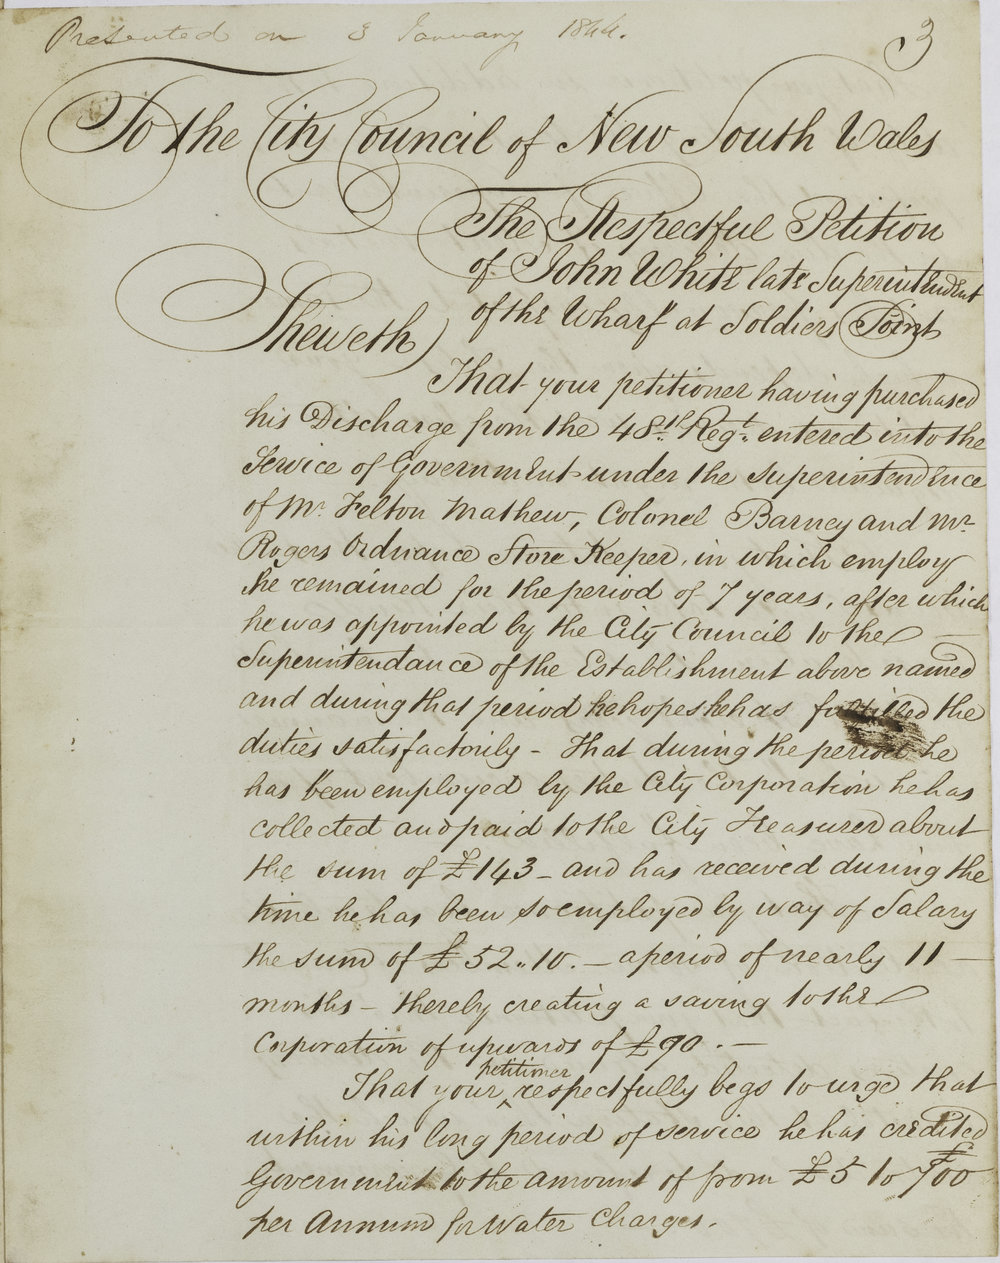 Presented on 3 January 1844.
3
To the City Council of New South Wales
The Respectful Petition
of John White late Superintendent
of the Wharf at Soldiers Point
Sheweth
That your petitioner having purchased
his Discharge from the 48th Regt. entered into the
Service of Government under the superintendence
of Mr. Felton Mathew, Colonel Barney and Mr.
Rogers Ordnance Store Keeper, in which employ
he remained for the period of 7 years, after which
he was appointed by the City Council to the
Superintendance of the Establishment above named
and during that period he hopes he has fulfilled the
duties satisfactorily - That during the period he
has been employed by the City Corporation he has
collected and paid to the City Treasurer about
the sum of £143 - and has received during the
time he has been so employed by way of Salary
the sum of £52.,10. - a period of nearly 11
months - thereby creating a saving to the
Corporation of upwards of £90. -
That your petitioner respectfully begs to urge that
within his long period of service he has credited
Government to the amount of from £5 to £700
per Annum for Water Charges.